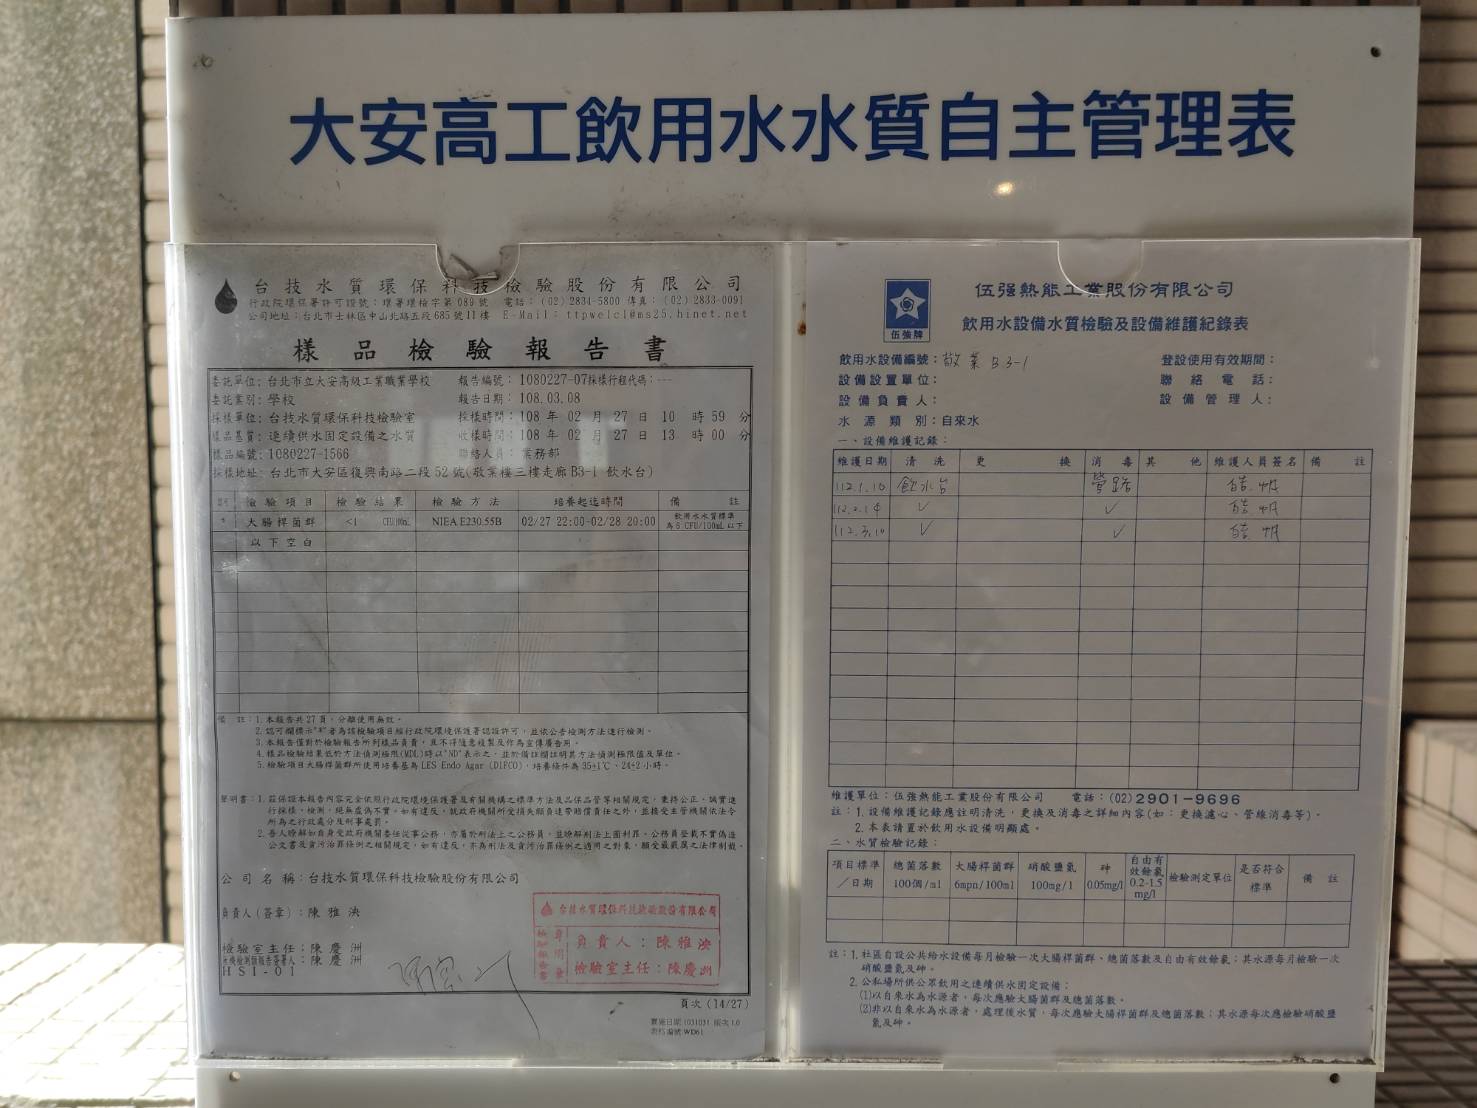 大安高工飲用水水質自主管理表
台技水質環保科技檢驗股份有限公司
行政院環保署許可證號：環署環檢字第089號 電話：(02) 2834-5800 傳真：(02) 2833-0091
公司地址：台北市士林區中山北路五段685號11樓 E-Mail：ttpwelcl@ms25.hinet.net
樣品檢驗報告書
委託單位：台北市立大安高級工業職業學校 報告編號：1080227-07採樣行程代碼：---
委託業別：學校 報告日期：108.03.08
採樣單位：台技水質環保科技檢驗室 採樣時間：108 年 02 月 27 日 10 時 59 分
樣品基質：連續供水固定設備之水質 收樣時間：108 年 02 月 27 日 13 時 00 分
樣品編號：1080227-1566 聯絡人員：業務部
採樣地址：台北市大安區復興南路二段52號(敬業樓三樓走廊B3-1 飲水台)
檢驗項目 檢驗結果 檢驗方法 培養起迄時間 備註
* 大腸桿菌群 <1 CFU/100mL NIEA E230.55B 02/27 22:00-02/28 20:00 飲用水水質標準為6 CFU/100mL以下
以下空白
備註：1.本報告共27頁，分離使用無效。
2.認可欄標示"*"者為該檢驗項目經行政院環境保護署認證許可，並依公告檢測方法進行檢測。
3.本報告僅對於檢驗報告所列樣品負責，且不得隨意複製及作為宣傳廣告用。
4.樣品檢驗結果低於方法偵測極限(MDL)時以"ND"表示之，並於備註欄註明其方法偵測極限值及單位。
5.檢驗項目大腸桿菌群所使用培養基為LES Endo Agar (DIFCO)，培養條件為35±1℃、24±2小時。
聲明書：1.茲保證本報告內容完全依照行政院環境保護署及有關機構之標準方法及品保品管等相關規定，秉持公正、誠實進
行採樣、檢測。絕無虛偽不實，如有違反，就政府機關所受損失願負連帶賠償責任之外，並接受主管機關依法令
所為之行政處分及刑事處罰。
2.吾人瞭解如自身受政府機關委任從事公務，亦屬於刑法上之公務員，並瞭解刑法上圖利罪、公務員登載不實偽造
公文書及貪污治罪條例之相關規定，如有違反，亦為刑法及貪污治罪條例之適用之對象，願受最嚴厲之法律制裁。
公司名稱：台技水質環保科技檢驗股份有限公司
負責人(簽章)：陳雅泱
檢驗室主任：陳慶洲
陳慶洲
HSI-01
台技水質環保科技檢驗股份有限公司
負責人：陳雅泱
檢驗室主任：陳慶洲
頁次 (14/27)
伍強牌
伍强熱能工業股份有限公司
飲用水設備水質檢驗及設備維護紀錄表
飲用水設備編號：敬業 B3-1 登設使用有效期間：
設備設置單位： 聯絡電話：
設備負責人： 設備管理人：
水源類別：自來水
一、設備維護記錄：
維護日期 清洗 更換 消毒 其他 維護人員簽名 備註
112.1.10 飲水台 管路
112.2.14 ✓ ✓
112.3.10 ✓ ✓
維護單位：伍强熱能工業股份有限公司 電話：(02)2901-9696
註：1.設備維護記錄應註明清洗，更換及消毒之詳細內容(如：更換濾心、管維消毒等)。
2.本表請置於飲用水設備明顯處。
二、水質檢驗記錄：
項目標準／日期 總菌落數 100個/ml 大腸桿菌群 6mpn/100ml 硝酸鹽氮 100mg/l 砷 0.05mg/l 自由有效餘氯 0.2-1.5 mg/l 檢驗測定單位 是否符合標準 備註
註：1.社區自設公共給水設備每月檢驗一次大腸桿菌群、總菌落數及自由有效餘氯；其水源每月檢驗一次
硝酸鹽氮及砷。
2.公私場所供公眾飲用之連續供水固定設備：
(1)以自來水為水源者，每次應驗大腸菌群及總菌落數。
(2)非以自來水為水源者，處理後水質，每次應驗大腸桿菌群及總菌落數；其水源每次應檢驗硝酸鹽
氮及砷。